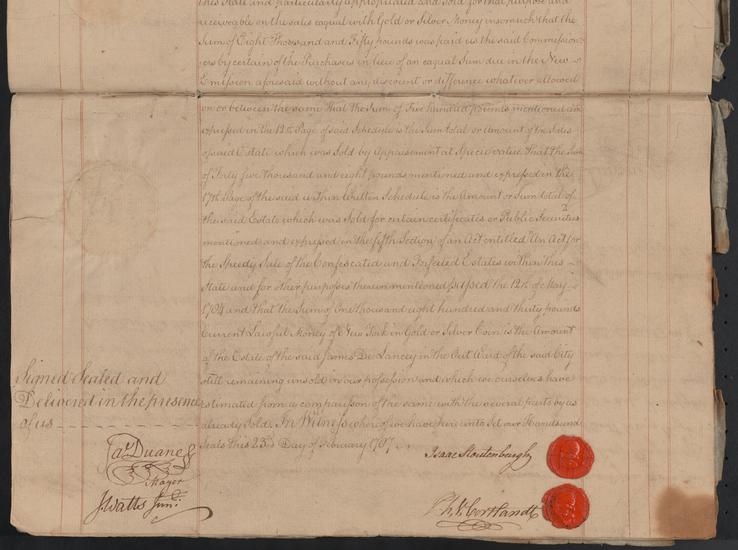 this State and particularly appropriated and sold for that purpose and
receivable on the sales eaqual with Gold or Silver Money insomuch that the
Sum of Eight Thousand and Fifty pounds was paid us the said Commission-
ers by certain of the Purchasers in lieu of an eaqual Sum due in the New
Emission aforesaid without any discount or difference whatever allowed
on or between the same That the Sum of Five hundred pounds mentioned and
expressed in the 12th Page of said Schedule is the Sum total or Amount of the Sales
of said Estate which was Sold by appraisement at Specie value That the Sum
of Forty five thousand and eight pounds mentioned and expressed in the
17th Page of the said within Written Schedule is the Amount or Sum total of
the said Estate which was Sold for certain certificates or Public Securities
mentioned and expressed in the fifth Section of an Act entitled An Act for
the Speedy Sale of the Confescated and Forfeited Estates within this
State and for other purposes therein mentioned passed the 12th of May
1784 and that the Sum of One thousand eight hundred and thirty pounds
Current Lawful Money of New York in Gold or Silver Coin is the Amount
of the Estate of the said James De Lancey in the Out Ward of the said City
still remaining unsold in our possession and which we ourselves have
estimated from a comparison of the same with the several parts by us
already Sold. In Witness whereof we have hereunto Set our Hands and
Seals this 23d Day of February 1787
Signed Sealed and
Delivered in the presence
of us
Jas. Duane
Mayor
J. Watts Junr.
Isaac Stoutenburgh
Ph. V. Cortlandt